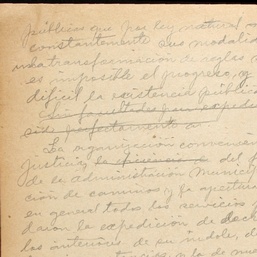 públicos que por ley natural
constantemente sus modalida
transformación de reglas
es imposible el progreso, y
difícil la existencia pública
Sin facultades para expedir
este perfectamente a
La organización convenien
justicia, la del
de la administración munici
ción de caminos y
en general todos los servicios
darán la expedición de
las anteriores de su índole, d